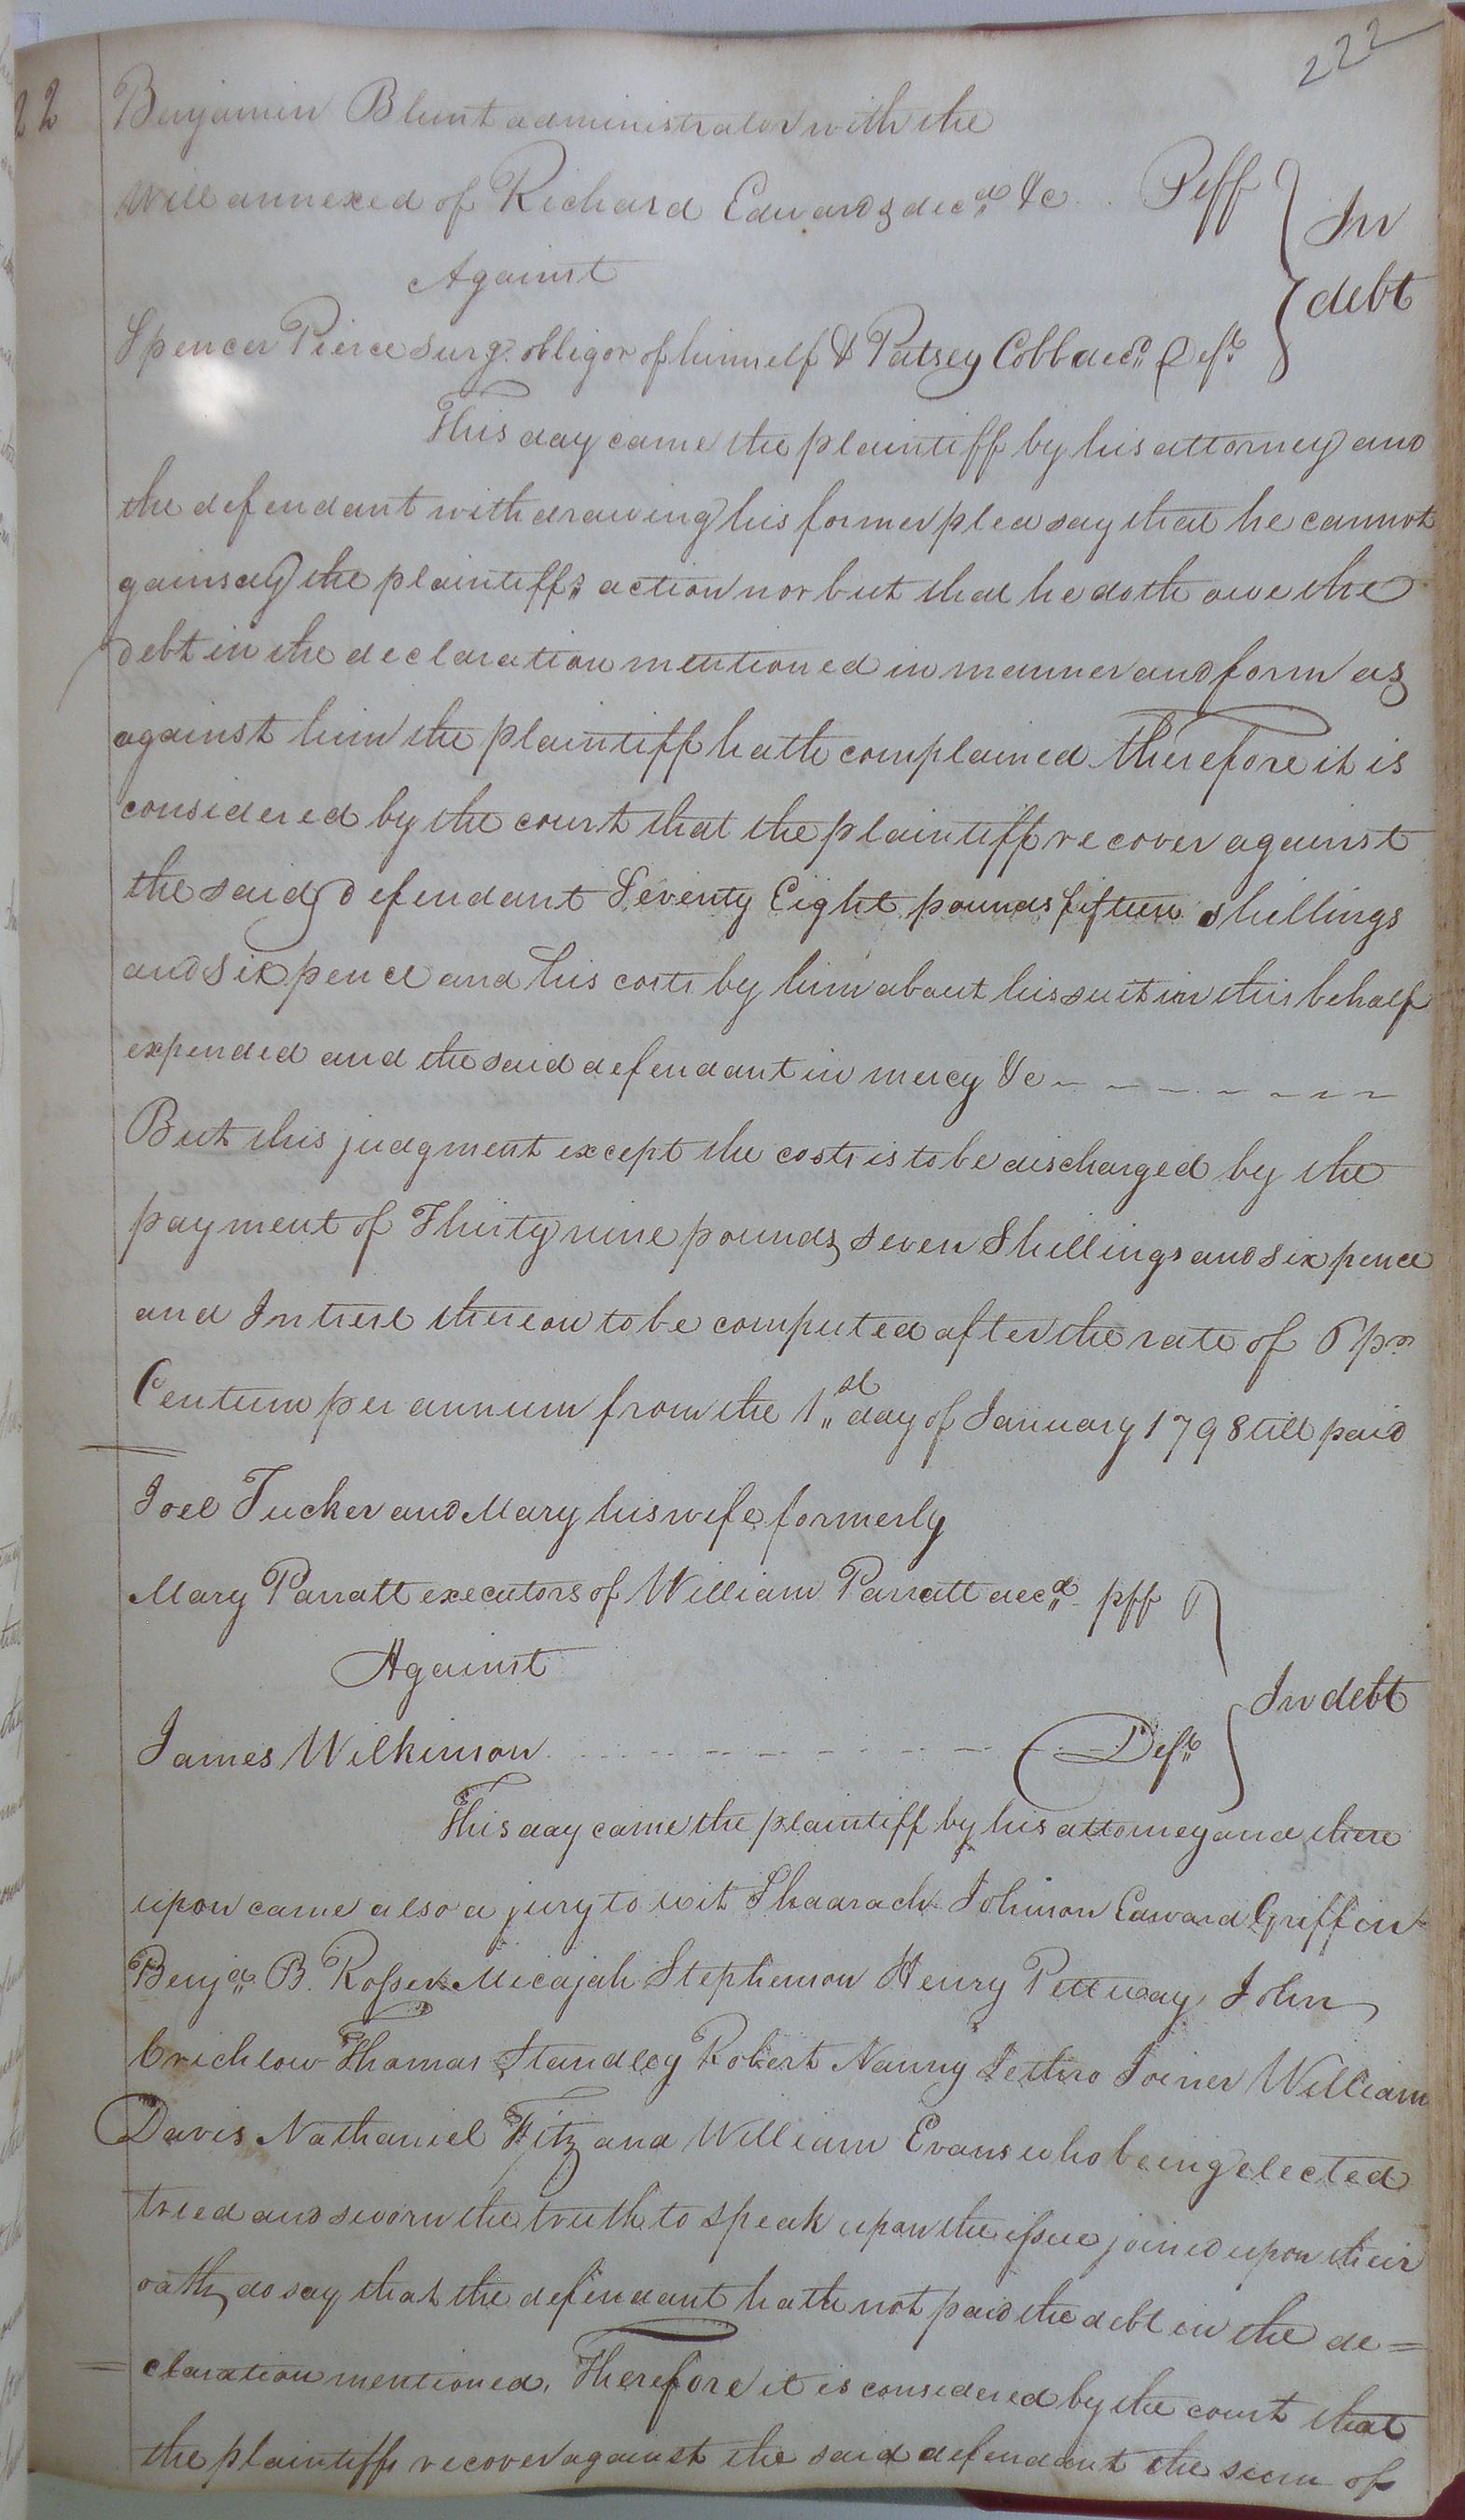 222
22
Benjamin Blunt administrator with the
Will annexed of Richard Edwards decd &c . . Plff
In
Against
debt
Spencer Pierce surg obligor of himself & Patsey Cobb decd Deft
This day came the plaintiff by his attorney and
the defendant withdrawing his former plea say that he cannot
gainsay the plaintiffs action nor but that he doth owe the
debt in the declaration mentioned in manner and form as
against him the plaintiff hath complained therefore it is
considered by the court that the plaintiff recover against
the said defendant Seventy Eight pounds fifteen shillings
and six pence and his costs by him about his suit in this behalf
expended and the said defendant in mercy &c - - - - - - - -
But this judgment except the costs is to be discharged by the
payment of Thirty nine pounds seven Shillings and six pence
and Intrest thereon to be computed after the rate of 6 pr
Centum per annum from the 1st day of January 1798 till paid
Joel Tucker and Mary his wife formerly
Mary Parratt executors of William Parratt decd plff
Against
In debt
James Wilkinson . - - - - - - - - - - Deft
This day came the plaintiff by his attorney and there
upon came also a jury to wit Shadrach Johnson Edward Griffin
Benja B. Rosser Micajah Stephenson Henry Pettway John
Crichlow Thomas Standley Robert Nanny Jethro Joiner William
Davis Nathaniel Fitz and William Evans who being elected
tried and sworn the truth to speak upon the issue joined upon their
oath do say that the defendant hath not paid the debt in the de=
=claration mentioned. Therefore it is considered by the court that
the plaintiffs recover against the said defendant the sum of